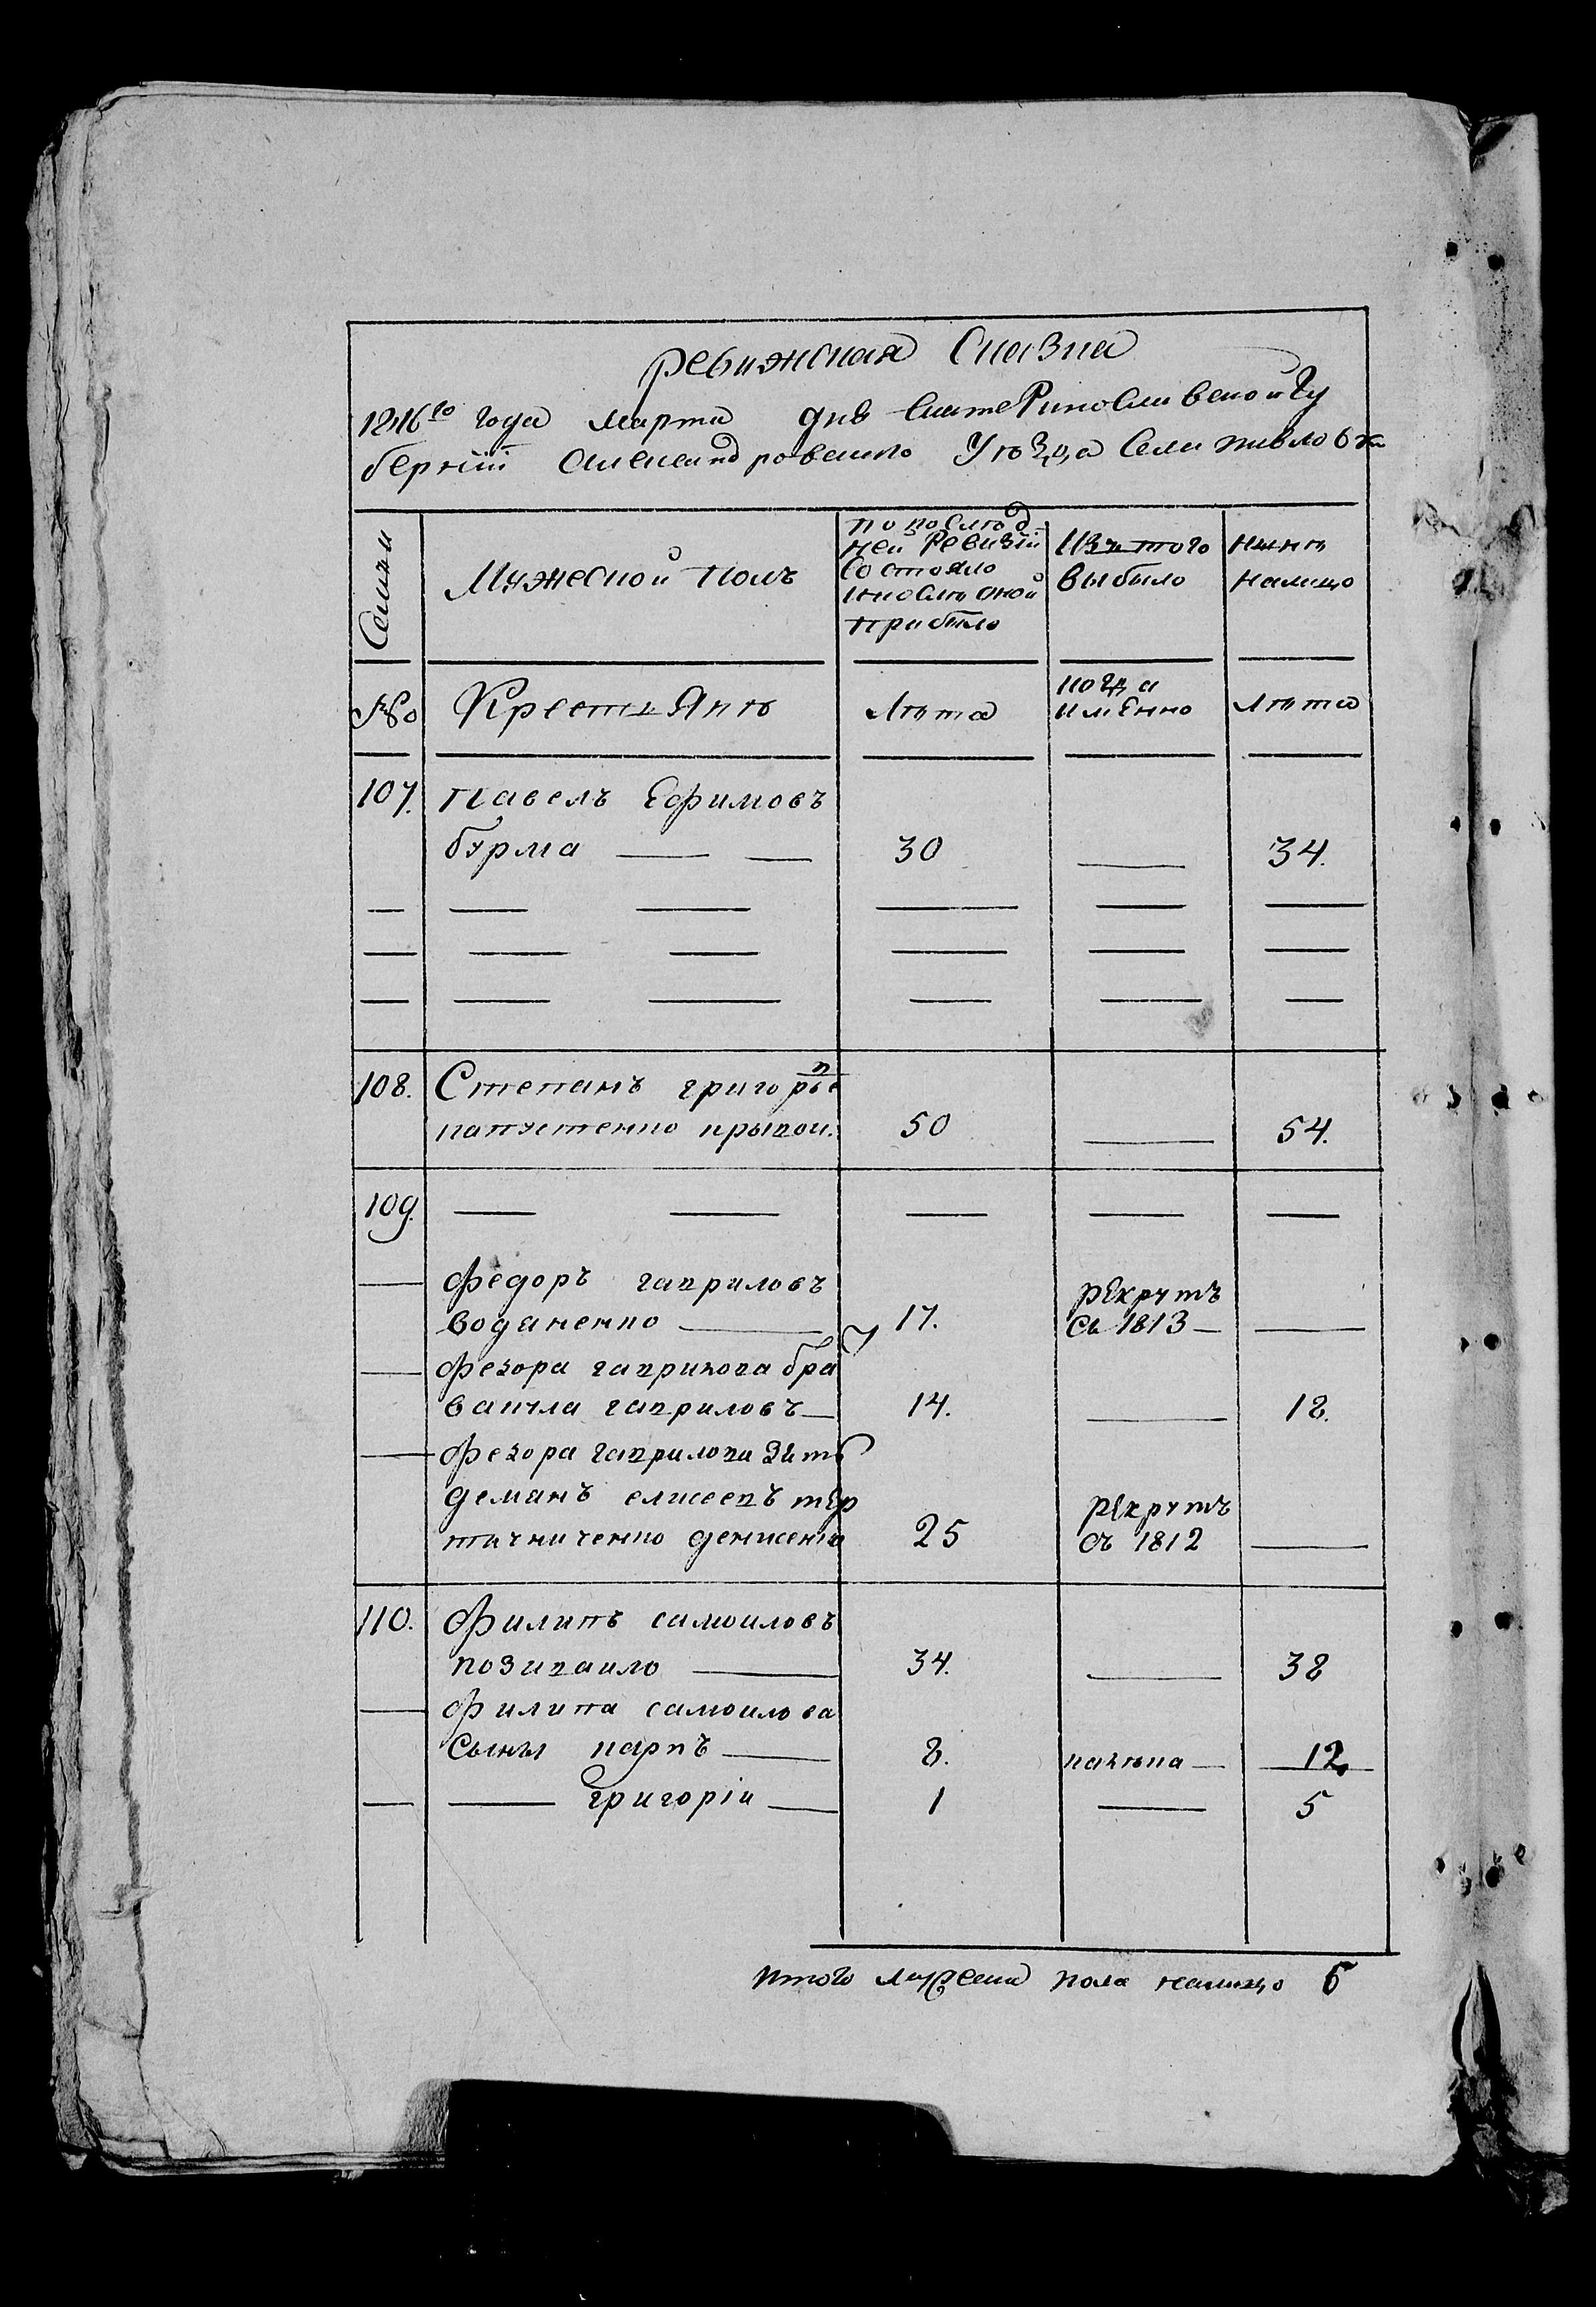 Ревижская Сказка
1816го года Марта дня Екатеринославской Гу
берніи Александровскаго Уѣзда Села
Семьи
Мужеской полъ
по послѣд
ней Ревизіи
состояло
и послѣ оной
прибыло
Изъ того
выбыло
нынѣ
налицо
№
Крестьянѣ
Лѣта
когда
имЕнно
Лѣта
107. Павелъ Ефимовъ
бурма — — 30 — 34.
— — — — — —
— — — — — —
— — — — — —
108. Степанъ григорьев
капустенко крывои. 50 — 54.
109. — — — — —
— федоръ гавриловъ
воданенко — 17. рЕкрутъ
съ 1813 — —
— федора гаврилова бра
гавриловъ — 14. — 18.
— федора гаврилова зять
демянъ елисеевъ
денисенко 25 рЕкрутъ
съ 1812 —
110. Филипъ самоиловъ
34. — 38
— филипа самоилова
Сыны карпъ — 8. — 12.
— — григоріи — 1 — 5
итого мужеска пола налицо 6